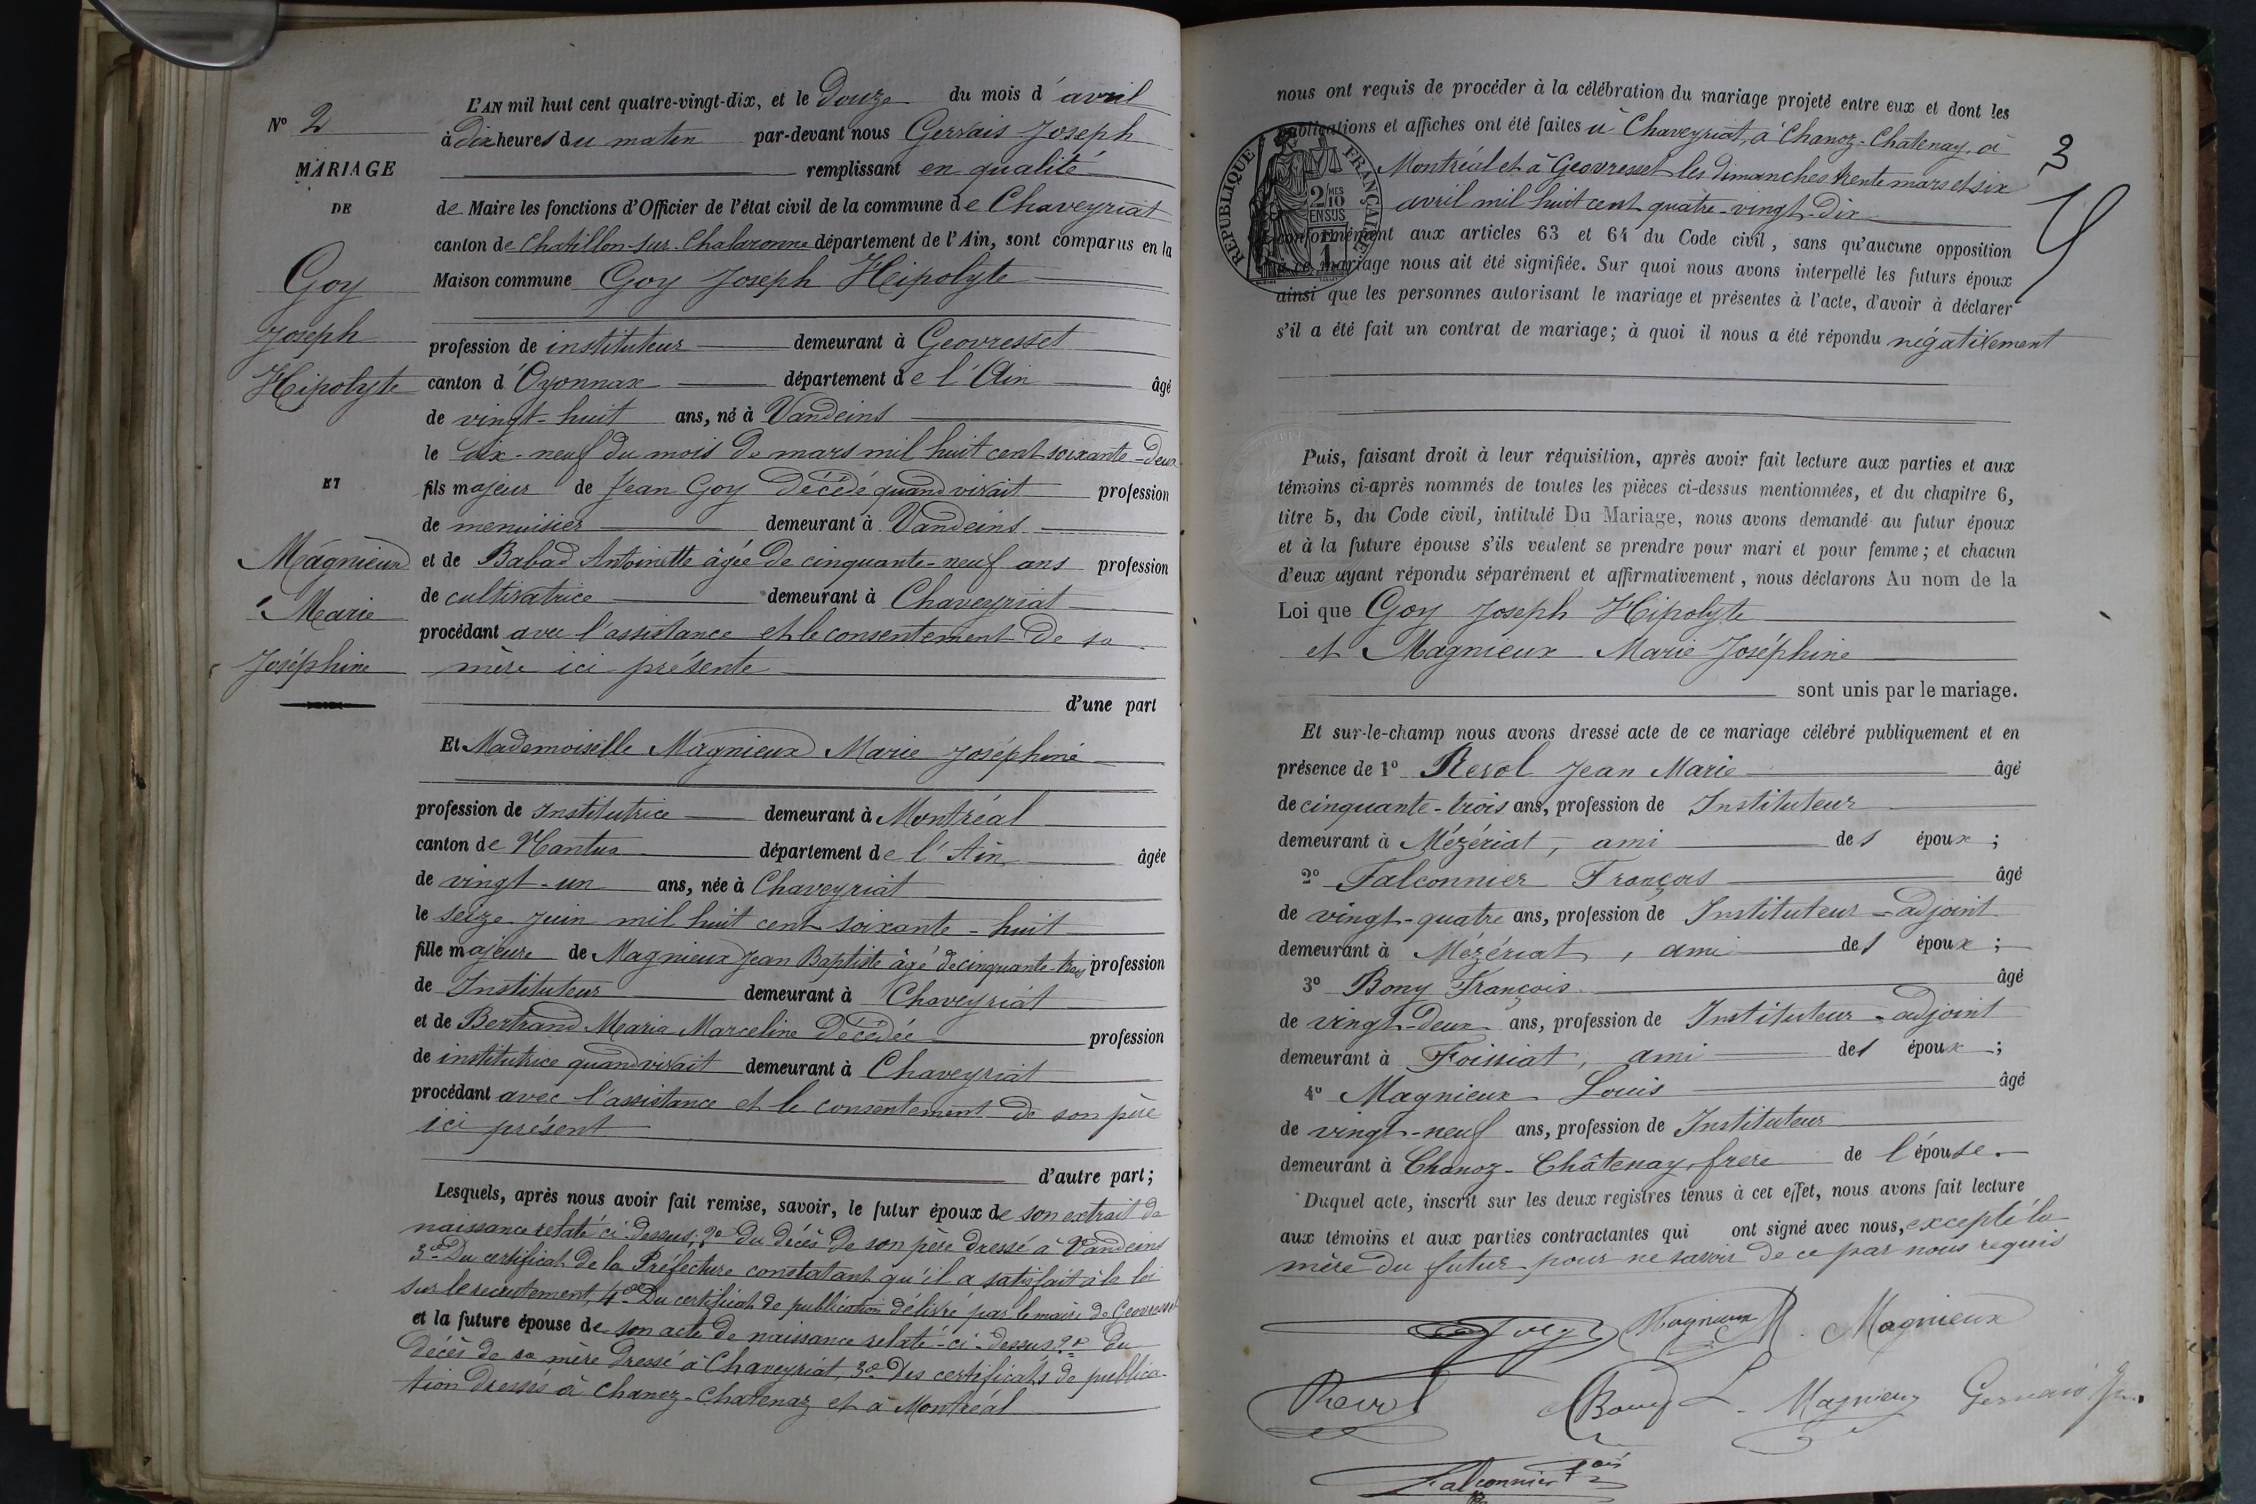 N° 2
MARIAGE
DE
Goy
Joseph
Hipolyte
ET
Magnieux
Marie
Joséphine
L'AN mil huit cent quatre-vingt-dix, et le Douze du mois d'avril
à dix heures du matin par-devant nous Gervais Joseph
remplissant en qualité
de Maire les fonctions d'Officier de l'état civil de la commune de Chaveyriat
canton de Chatillon-sur-Chalaronne département de l'Ain, sont comparus en la
Maison commune Goy Joseph Hipolyte
profession de instituteur demeurant à Geovresset
canton d'Oyonnax département de l'Ain âgé
de vingt-huit ans, né à Vandeins
le dix-neuf du mois de mars mil huit cent soixante-deux
fils majeur de Jean Goy Décédé quand vivait profession
de menuisier demeurant à Vandeins
et de Babad Antoinette âgée de cinquante-neuf ans profession
de cultivatrice demeurant à Chaveyriat
procédant avec l'assistance et le consentement de sa
mère ici présente
d'une part
Et Mademoiselle Magnieux Marie Joséphine
profession de Institutrice demeurant à Montréal
canton de Nantua département de l'Ain âgée
de vingt-un ans, née à Chaveyriat
le seize juin mil huit cent soixante-huit
fille majeure de Magnieux Jean Baptiste âgé de cinquante-trois profession
de Instituteur demeurant à Chaveyriat
et de Bertrand Marie Marceline Décédée profession
de institutrice quand vivait demeurant à Chaveyriat
procédant avec l'assistance et le consentement de son père
ici présent
d'autre part;
Lesquels, après nous avoir fait remise, savoir, le futur époux de son extrait de
naissance relaté ci-dessus; 2° du décès de son père dressé à Vandeins
3° Du certificat de la Préfecture constatant qu'il a satisfait à la loi
sur le recrutement, 4° Du certificat de publication délivré par le maire de Geovresset
et la future épouse de son acte de naissance relaté-ci-dessus 2° du
Décès de sa mère Dressé à Chaveyriat, 3° Des certificats de publica-
tion dressés à Chanoz-Chatenay et à Montréal
nous ont requis de procéder à la célébration du mariage projeté entre eux et dont les
publications et affiches ont été faites à Chaveyriat, à Chanoz-Chatenay, à
Montréal et à Geovresset les dimanches trente mars et six
avril mil huit cent quatre-vingt-dix
conformément aux articles 63 et 64 du Code civil, sans qu'aucune opposition
à ce mariage nous ait été signifiée. Sur quoi nous avons interpellé les futurs époux
ainsi que les personnes autorisant le mariage et présentes à l'acte, d'avoir à déclarer
s'il a été fait un contrat de mariage; à quoi il nous a été répondu négativement
RÉPUBLIQUE FRANÇAISE
2/10
EN SUS
3
Puis, faisant droit à leur réquisition, après avoir fait lecture aux parties et aux
témoins ci-après nommés de toutes les pièces ci-dessus mentionnées, et du chapitre 6,
titre 5, du Code civil, intitulé Du Mariage, nous avons demandé au futur époux
et à la future épouse s'ils veulent se prendre pour mari et pour femme; et chacun
d'eux ayant répondu séparément et affirmativement, nous déclarons Au nom de la
Loi que Goy Joseph Hipolyte
et Magnieux Marie Joséphine
sont unis par le mariage.
Et sur-le-champ nous avons dressé acte de ce mariage célébré publiquement et en
présence de 1° Revol Jean Marie âgé
de cinquante-trois ans, profession de Instituteur
demeurant à Mézériat, ami des époux;
2° Falconnier François âgé
de vingt-quatre ans, profession de Instituteur-adjoint
demeurant à Mézériat, ami des époux;
3° Bony François âgé
de vingt-deux ans, profession de Instituteur-adjoint
demeurant à Foissiat, ami des époux;
4° Magnieux Louis âgé
de vingt-neuf ans, profession de Instituteur
demeurant à Chanoz-Châtenay, frere de l'épouse.
Duquel acte, inscrit sur les deux registres tenus à cet effet, nous avons fait lecture
aux témoins et aux parties contractantes qui ont signé avec nous, excepté la
mère du futur pour ne savoir de ce par nous requis
Goy Magnieux M. Magnieux
Revol Bony L. Magnieux Gervais
Falconnier Fçois